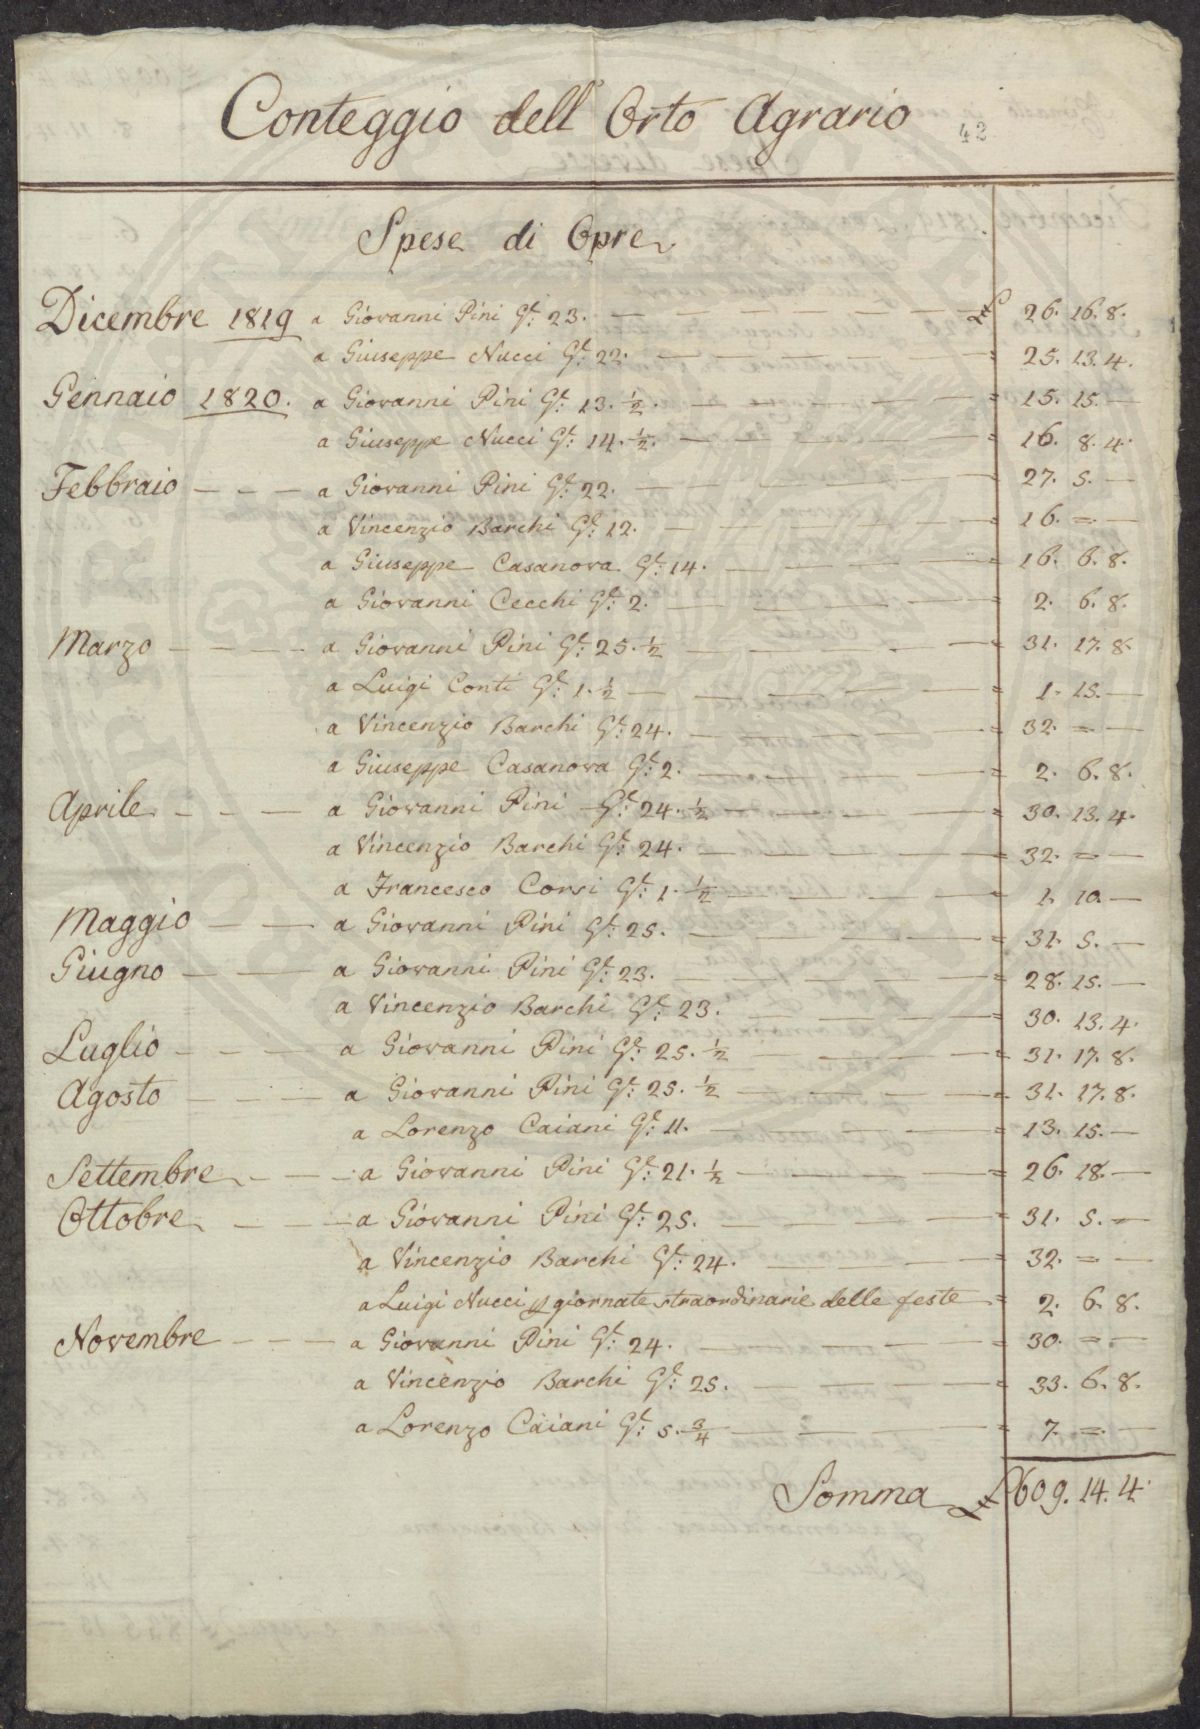 Conteggio dell' Orto Agrario
42
Spese di Opre
Dicembre 1819 a Giovanni Pini Gte: 23. — £ 26. 16. 8.
a Giuseppe Nucci Gte: 22. — = 25. 13. 4.
Gennaio 1820. a Giovanni Pini Gte: 13. ½. — = 15. 15. —
a Giuseppe Nucci Gte: 14. ½. — = 16. 8. 4.
Febbraio — a Giovanni Pini Gte: 22. — = 27. 5. —
a Vincenzio Barchi Gte: 12. — = 16. = —
a Giuseppe Casanova Gte: 14. — = 16. 6. 8.
a Giovanni Cecchi Gte: 2. — = 2. 6. 8.
Marzo — a Giovanni Pini Gte: 25. ½ — = 31. 17. 8.
a Luigi Conti Gte: 1. ½ — = 1. 15. —
a Vincenzio Barchi Gte: 24. — = 32. = —
a Giuseppe Casanova Gte: 2. — = 2. 6. 8.
Aprile — a Giovanni Pini Gte: 24. ½ — = 30. 13. 4.
a Vincenzio Barchi Gte: 24. — = 32. = —
a Francesco Corsi Gte: 1. ½ — = 1. 10. —
Maggio — a Giovanni Pini Gte: 25. — = 31. 5. —
Giugno — a Giovanni Pini Gte: 23. — = 28. 15. —
a Vincenzio Barchi Gte: 23. — = 30. 13. 4.
Luglio — a Giovanni Pini Gte: 25. ½ — = 31. 17. 8.
Agosto — a Giovanni Pini Gte: 25. ½ — = 31. 17. 8.
a Lorenzo Caiani Gte: 11. — = 13. 15. —
Settembre — a Giovanni Pini Gte: 21. ½ — = 26. 18. —
Ottobre — a Giovanni Pini Gte: 25. — = 31. 5. —
a Vincenzio Barchi Gte: 24. — = 32. = —
a Luigi Nucci p giornate straordinarie delle feste = 2. 6. 8.
Novembre — a Giovanni Pini Gte: 24. — = 30. = —
a Vincenzio Barchi Gte: 25. — = 33. 6. 8.
a Lorenzo Caiani Gte: 5. ¾ — = 7. = —
Somma £ 609. 14. 4.